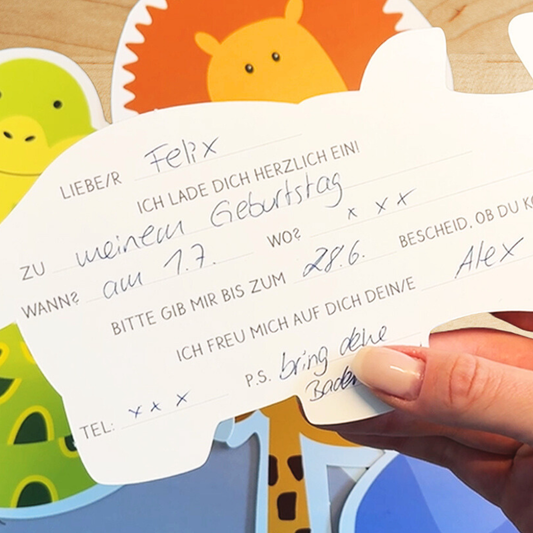 LIEBE/R Felix
ICH LADE DICH HERZLICH EIN!
ZU meinem Geburtstag
WANN? am 1.7. WO? x x x
BITTE GIB MIR BIS ZUM 28.6. BESCHEID, OB DU
ICH FREU MICH AUF DICH DEIN/E Alex
TEL: x x x P.S. bring deine